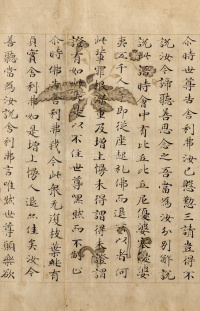 尒時世尊告舍利弗汝已慇懃三請豈得不
說汝今諦聽善思念之吾當為汝分別解說
說此語時會中有比丘比丘尼優婆塞優婆
夷五千人等即從座起禮佛而退所以者何
此輩罪根深重及增上慢未得謂得未證謂
證有如此失是以不住世尊默然而不制止
尒時佛告舍利弗我今此眾無復枝葉純有
貞實舍利弗如是增上慢人退亦佳矣汝今
善聽當為汝說舍利弗言唯然世尊願樂欲